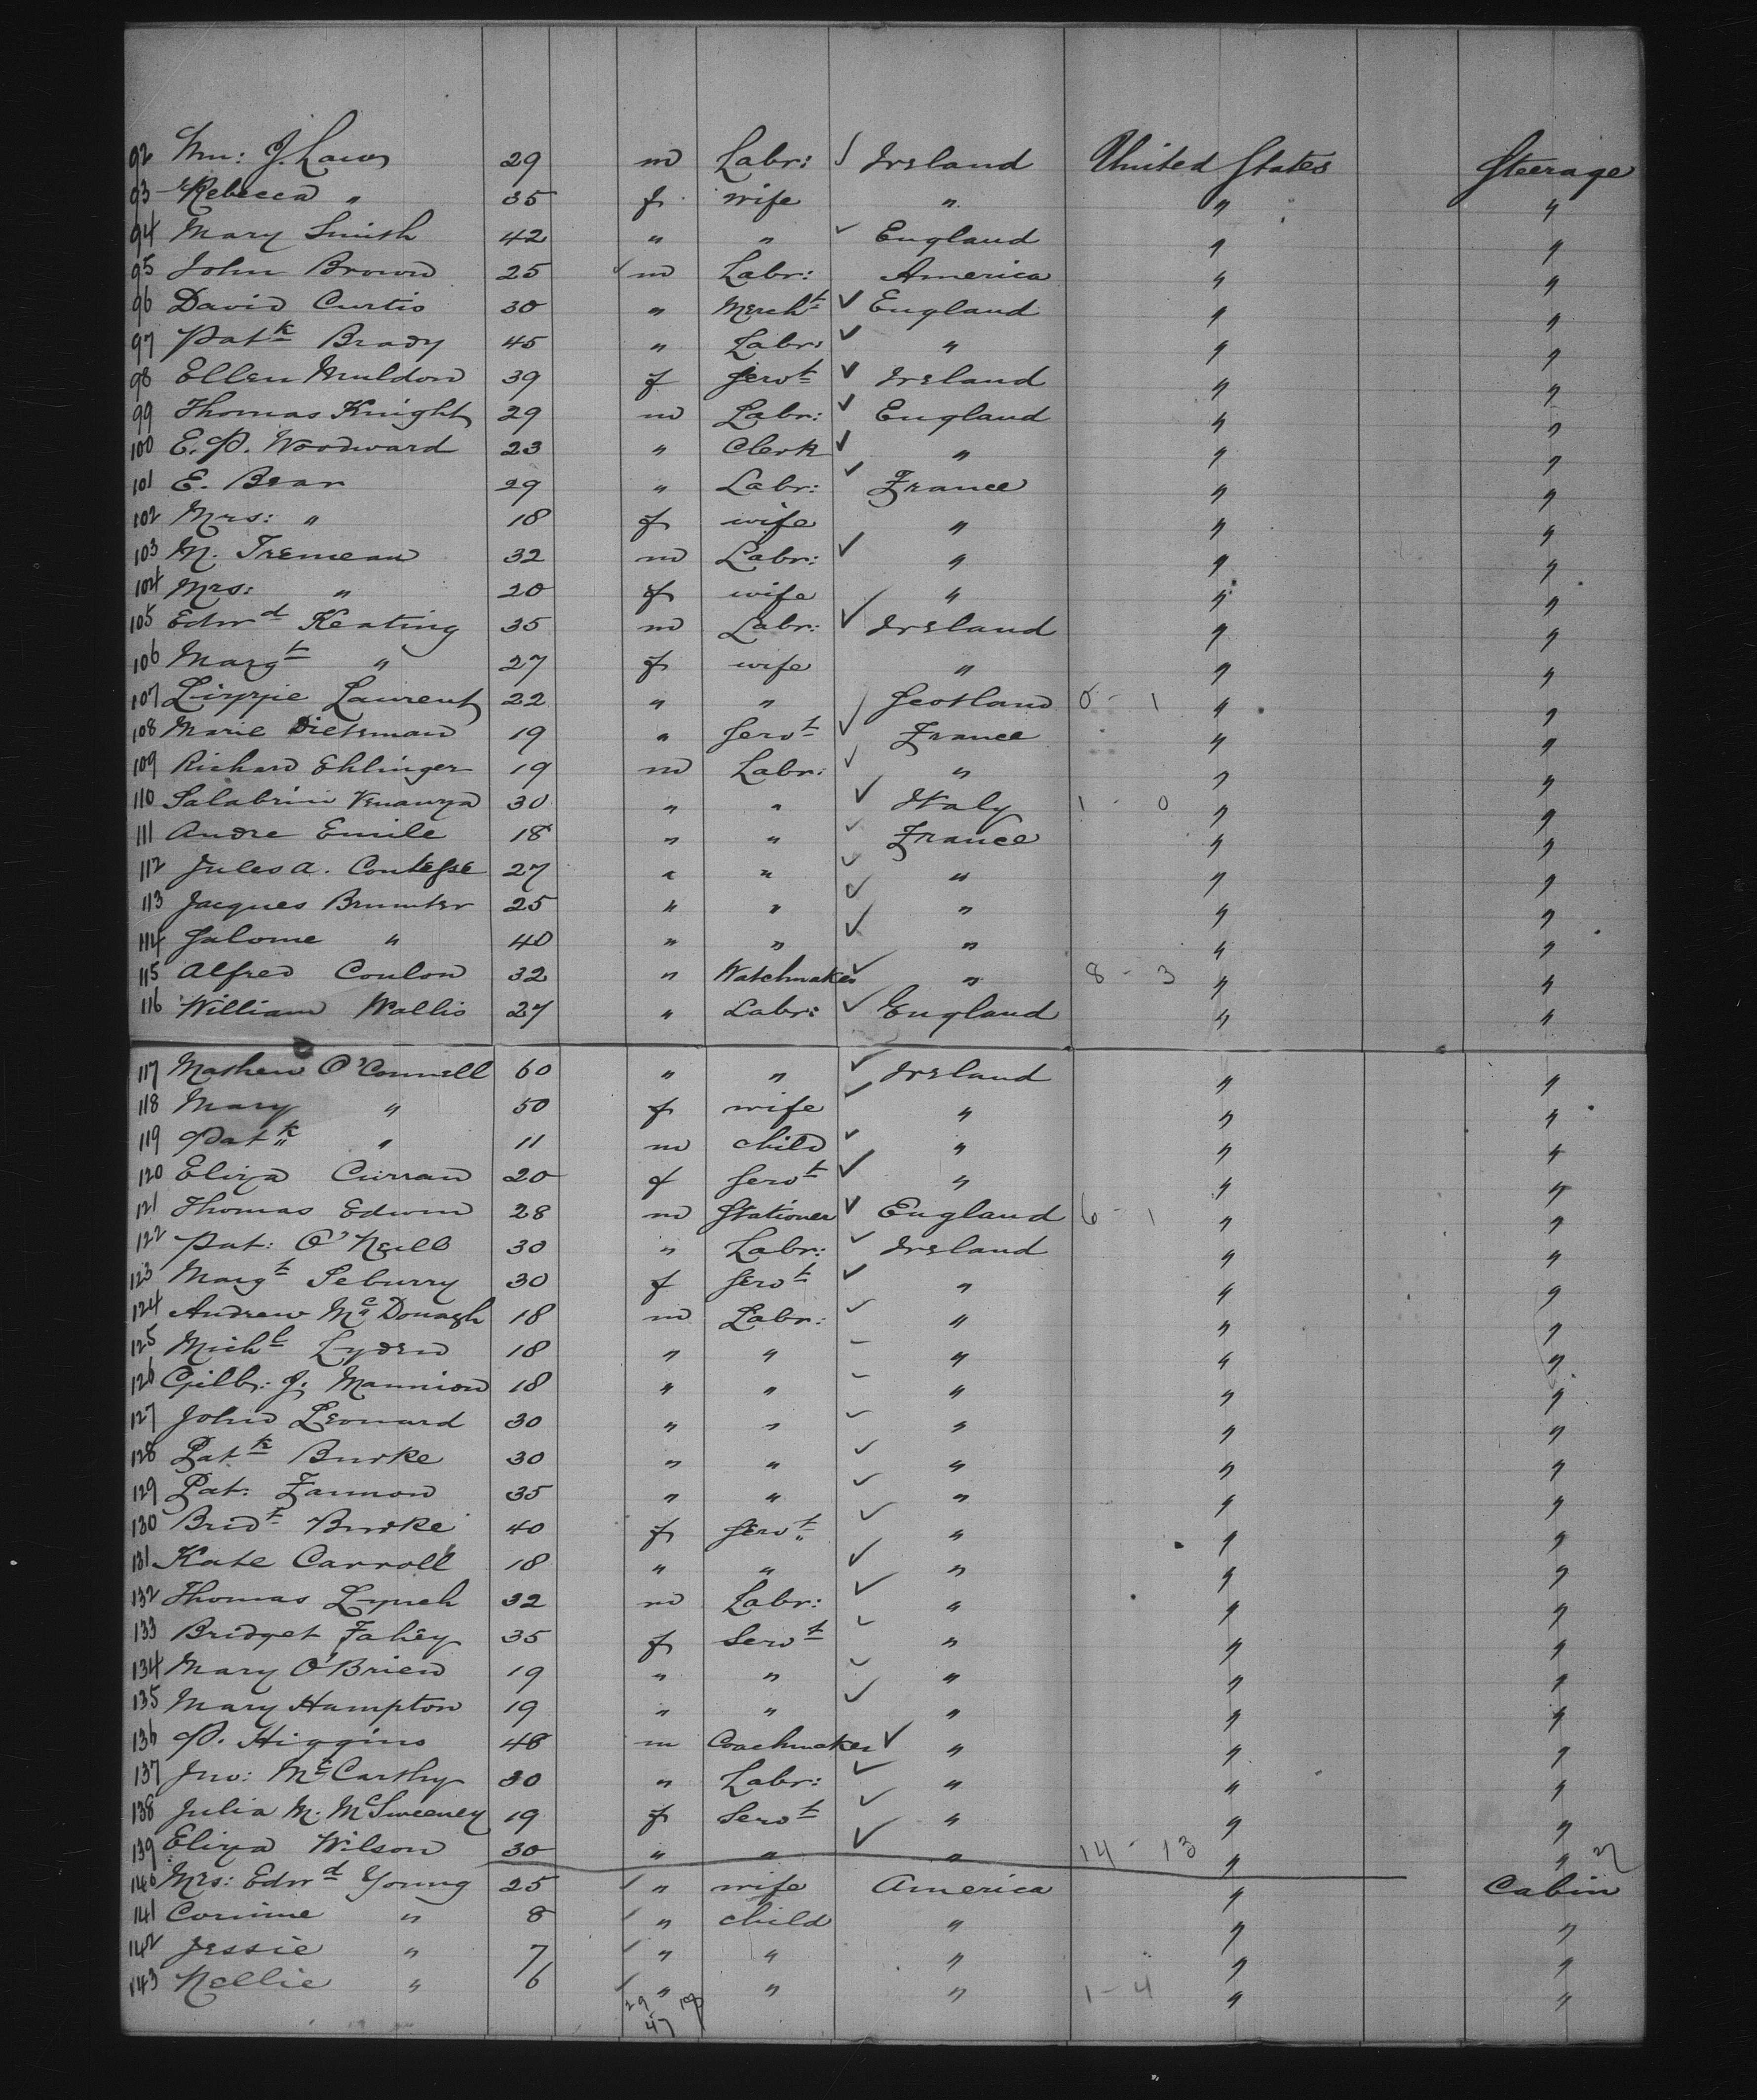 92 Wm: J. Laws 29 m Labr: Ireland United States Steerage
93 Rebecca " 35 f wife " " "
94 Mary Smith 42 " " England " "
95 John Brown 25 m Labr: America " "
96 David Curtis 30 " Mercht England " "
97 Patk Brady 45 " Labr: " " "
98 Ellen Muldon 39 f Servt Ireland " "
99 Thomas Knight 29 m Labr: England " "
100 E. P. Woodward 23 " Clerk " " "
101 E. Bear 29 " Labr: France " "
102 Mrs: " 18 f wife " " "
103 M. Tremeau 32 m Labr: " " "
104 Mrs: " 20 f wife " " "
105 Edwd Keating 35 m Labr: Ireland " "
106 Margt " 27 f wife " " "
107 Lizzie Laurent 22 " " Scotland 0 - 1 " "
108 Marie Dietsman 19 " Servt France " "
109 Richard Ehlinger 19 m Labr: " " "
110 Salabrini Venanza 30 " " Italy 1 - 0 " "
111 Andre Emile 18 " " France " "
112 Jules A. Contesse 27 " " " " "
113 Jacques Brunter 25 " " " " "
114 Salome " 40 " " " " "
115 Alfred Coulon 32 " Watchmaker " 8 - 3 " "
116 William Wallis 27 " Labr: England " "
117 Mathew O'Connell 60 " " Ireland " "
118 Mary " 50 f wife " " "
119 Patk " 11 m child " " "
120 Eliza Curran 20 f Servt " " "
121 Thomas Edwin 28 m Stationer England 6 - 1 " "
122 Pat: O'Neill 30 " Labr: Ireland " "
123 Margt Seburry 30 f Servt " " "
124 Andrew McDonagh 18 m Labr: " " "
125 Michl Lyden 18 " " " " "
126 Gilb: J. Mannion 18 " " " " "
127 John Leonard 30 " " " " "
128 Patk Burke 30 " " " " "
129 Pat: Fannon 35 " " " " "
130 Bridt Burke 40 f Servt " " "
131 Kate Carroll 18 " " " " "
132 Thomas Lynch 32 m Labr: " " "
133 Bridget Fahey 35 f Servt " " "
134 Mary O'Brien 19 " " " " "
135 Mary Hampton 19 " " " " "
136 P. Higgins 48 m Coachmaker " " "
137 Jno: McCarthy 30 " Labr: " " "
138 Julia M. McSweeney 19 f Servt " " "
139 Eliza Wilson 30 " " " 14 - 13 " "
140 Mrs: Edwd Young 25 " wife America " Cabin
141 Corinne " 8 " child " " "
142 Jessie " 7 " " " " "
143 Nellie " 6 " " " 1 - 4 " "
29
47